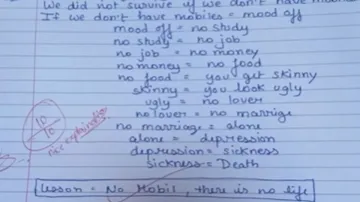 We did not survive if we don't have
If we don't have mobiles = mood off
mood off = no study
no study = no job
no job = no money
no money = no food
no food = you get skinny
skinny = you look ugly
ugly = no lover
no lover = no marrige
no marriage = alone
alone = depression
depression = sickness
sickness = Death
10
10
nice explanation
Lesson = No Mobil, there is no life